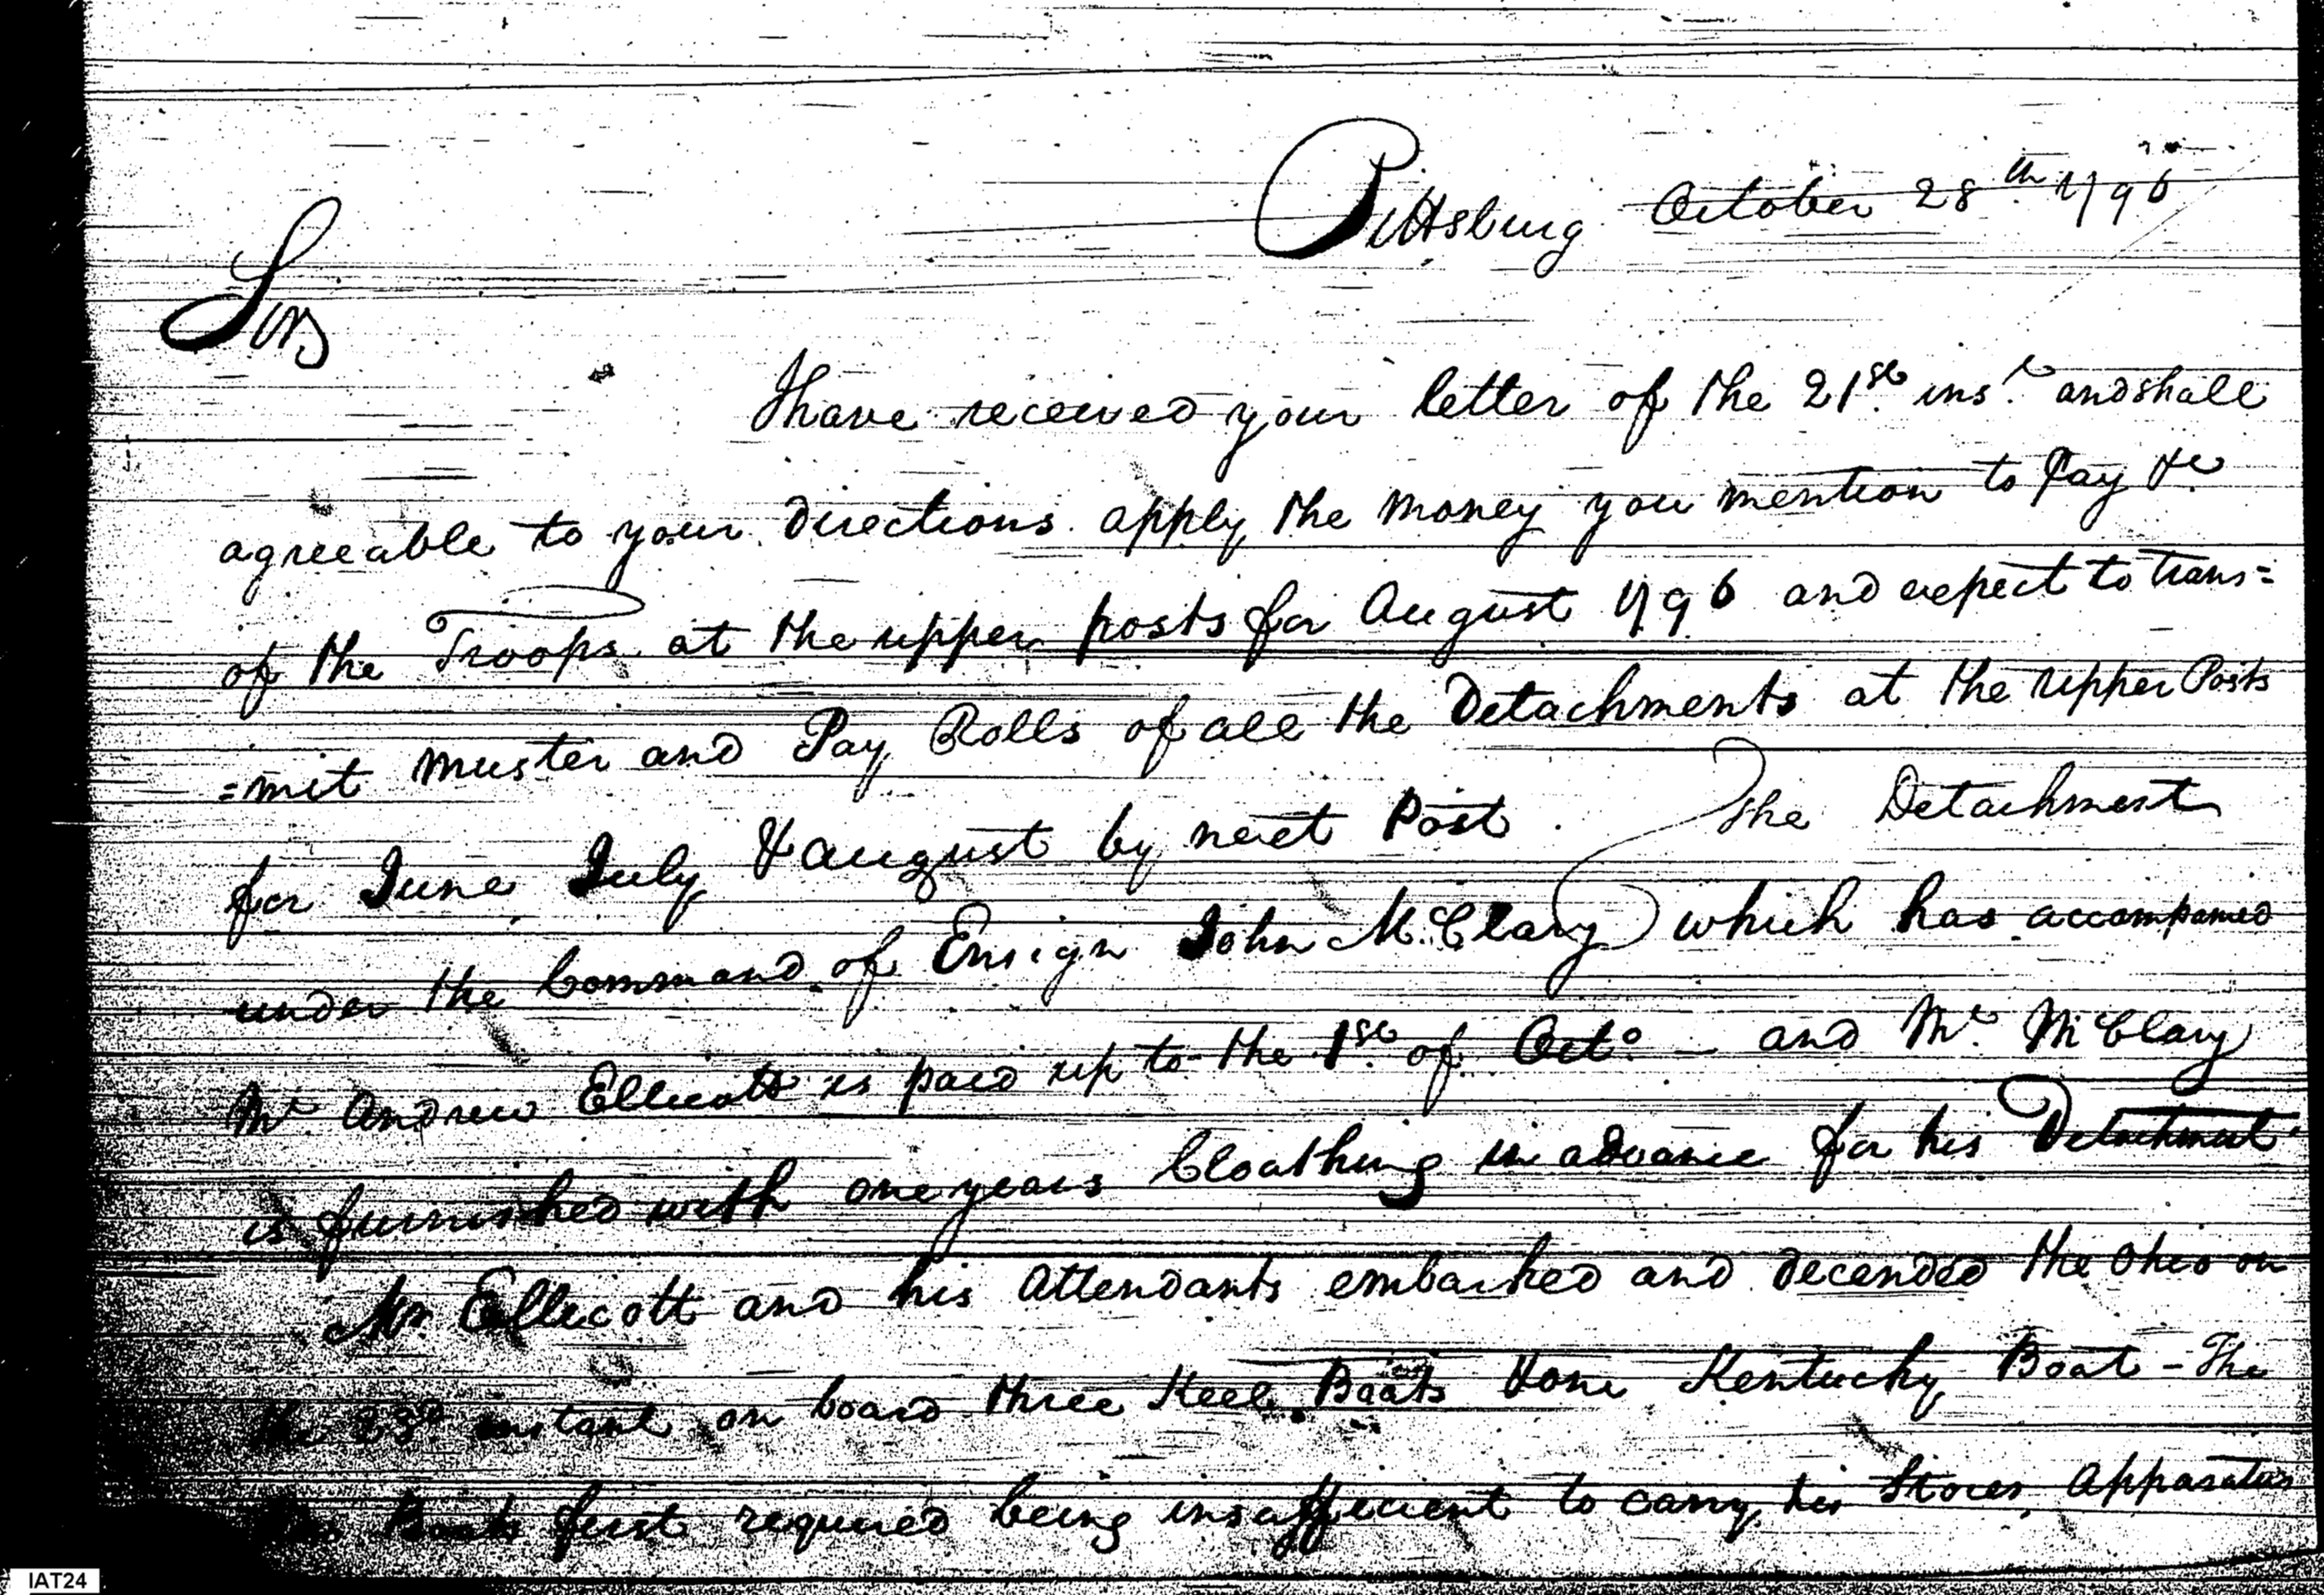 Pittsburg October 28th 1796
Sir
I have received your letter of the 21st inst. and shall
agreeable to your directions apply the money you mention to Pay &c
of the Troops at the upper posts for August 1796 and expect to trans=
=mit muster and Pay Rolls of all the Detachments at the upper Posts
for June July & august by next Post. The Detachment
under the Command of Ensign John McClary which has accompanied
Mr. Andrew Ellicott is paid up to the 1st of Octo. - and Mr. McClary
is furnished with one years Cloathing in advance for his Detachment.
Mr. Ellicott and his attendants embarked and decended the Ohio on
the 23d instant on board three Keel Boats & one Kentucky Boat - The
Boats first required being insufficient to carry his Stores, Apparatus
IAT24